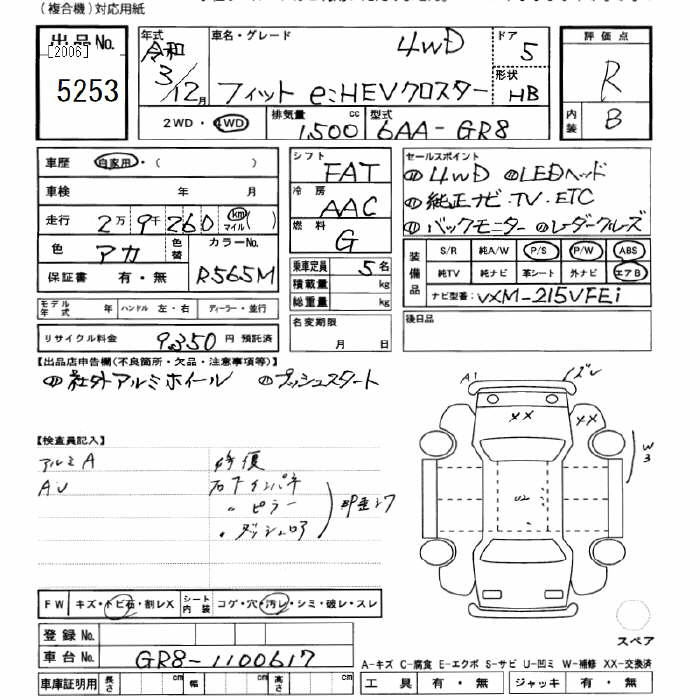 (複合機)対応用紙
出品No.
[2006]
5253
年式
令和
3/12月
車名・グレード
4WD
フィット e:HEVクロスター
ドア
5
形状
HB
評価点
R
内装
B
2WD・4WD
排気量
1,500 cc
型式
6AA-GR8
車歴 自家用・( )
車検 年 月
走行 2万9千260 km マイル ( )
色 アカ 色替
カラーNo.
R565M
保証書 有・無
シフト
FAT
冷房
AAC
燃料
G
乗車定員 5名
積載量 kg
総重量 kg
セールスポイント
4WD LEDヘッド
純正ナビ・TV・ETC
バックモニター レーダークルーズ
装備品
S/R 純A/W P/S P/W ABS
純TV 純ナビ 革シート 外ナビ エアB
ナビ型番: VXM-215VFEi
モデル年式 年 ハンドル 左・右 ディーラー・並行
リサイクル料金 9,350 円 預託済
名変期限
月 日
後日品
【出品店申告欄(不良箇所・欠品・注意事項等)】
社外アルミホイール プッシュスタート
【検査員記入】
アルミA
AU
修復
右下インパネ
〃 ピラー
・ダッシュロア
A1
ズレ
XX
XX
W3
U2
FW キズ・トビ石・割レX
シート内装 コゲ・穴・汚レ・シミ・破レ・スレ
登録No.
車台No. GR8-1100617
車庫証明用 長さ cm 幅 cm 高さ cm
スペア
A-キズ C-腐食 E-エクボ S-サビ U-凹ミ W-補修 XX-交換済
工具 有・無 ジャッキ 有・無